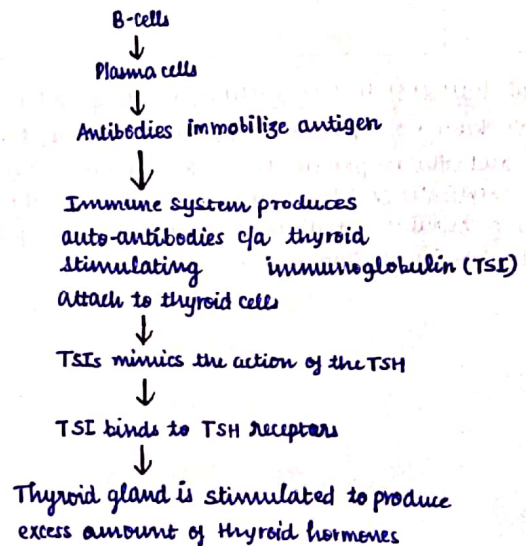 B-cells
↓
Plasma cells
↓
Antibodies immobilize antigen
↓
Immune system produces
auto-antibodies c/a thyroid
stimulating immunoglobulin (TSI)
attach to thyroid cells
↓
TSIs mimics the action of the TSH
↓
TSI binds to TSH receptors
↓
Thyroid gland is stimulated to produce
excess amount of thyroid hormones